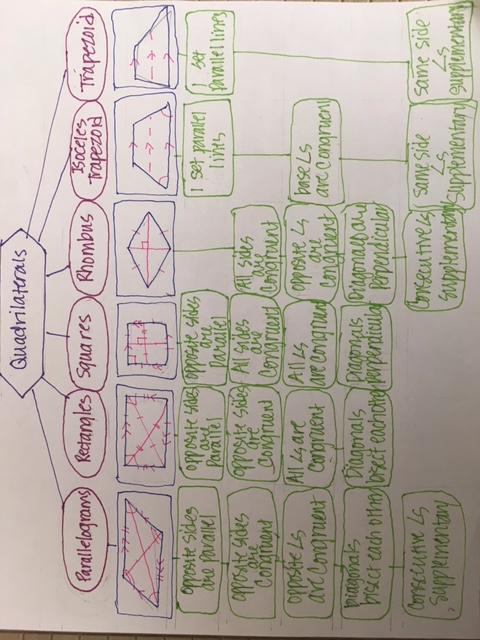 Quadrilaterals
Parallelograms
opposite sides
are parallel
opposite sides
are
congruent
opposite ∠s
are congruent
Diagonals
bisect each other
consecutive ∠s
supplementary
Rectangles
opposite sides
are
parallel
opposite sides
are
congruent
All ∠s are
congruent
Diagonals
bisect eachother
Squares
opposite sides
are
parallel
All sides
are
congruent
All ∠s
are congruent
Diagonals
perpendicular
Rhombus
All sides
are
congruent
opposite ∠s
are
congruent
Diagonals are
perpendicular
Consecutive ∠s
supplementary
Isoceles
Trapezoid
1 set parallel
lines
base ∠s
are congruent
same side
∠s
supplementary
Trapezoid
1 set
parallel lines
same side
∠s
supplementary